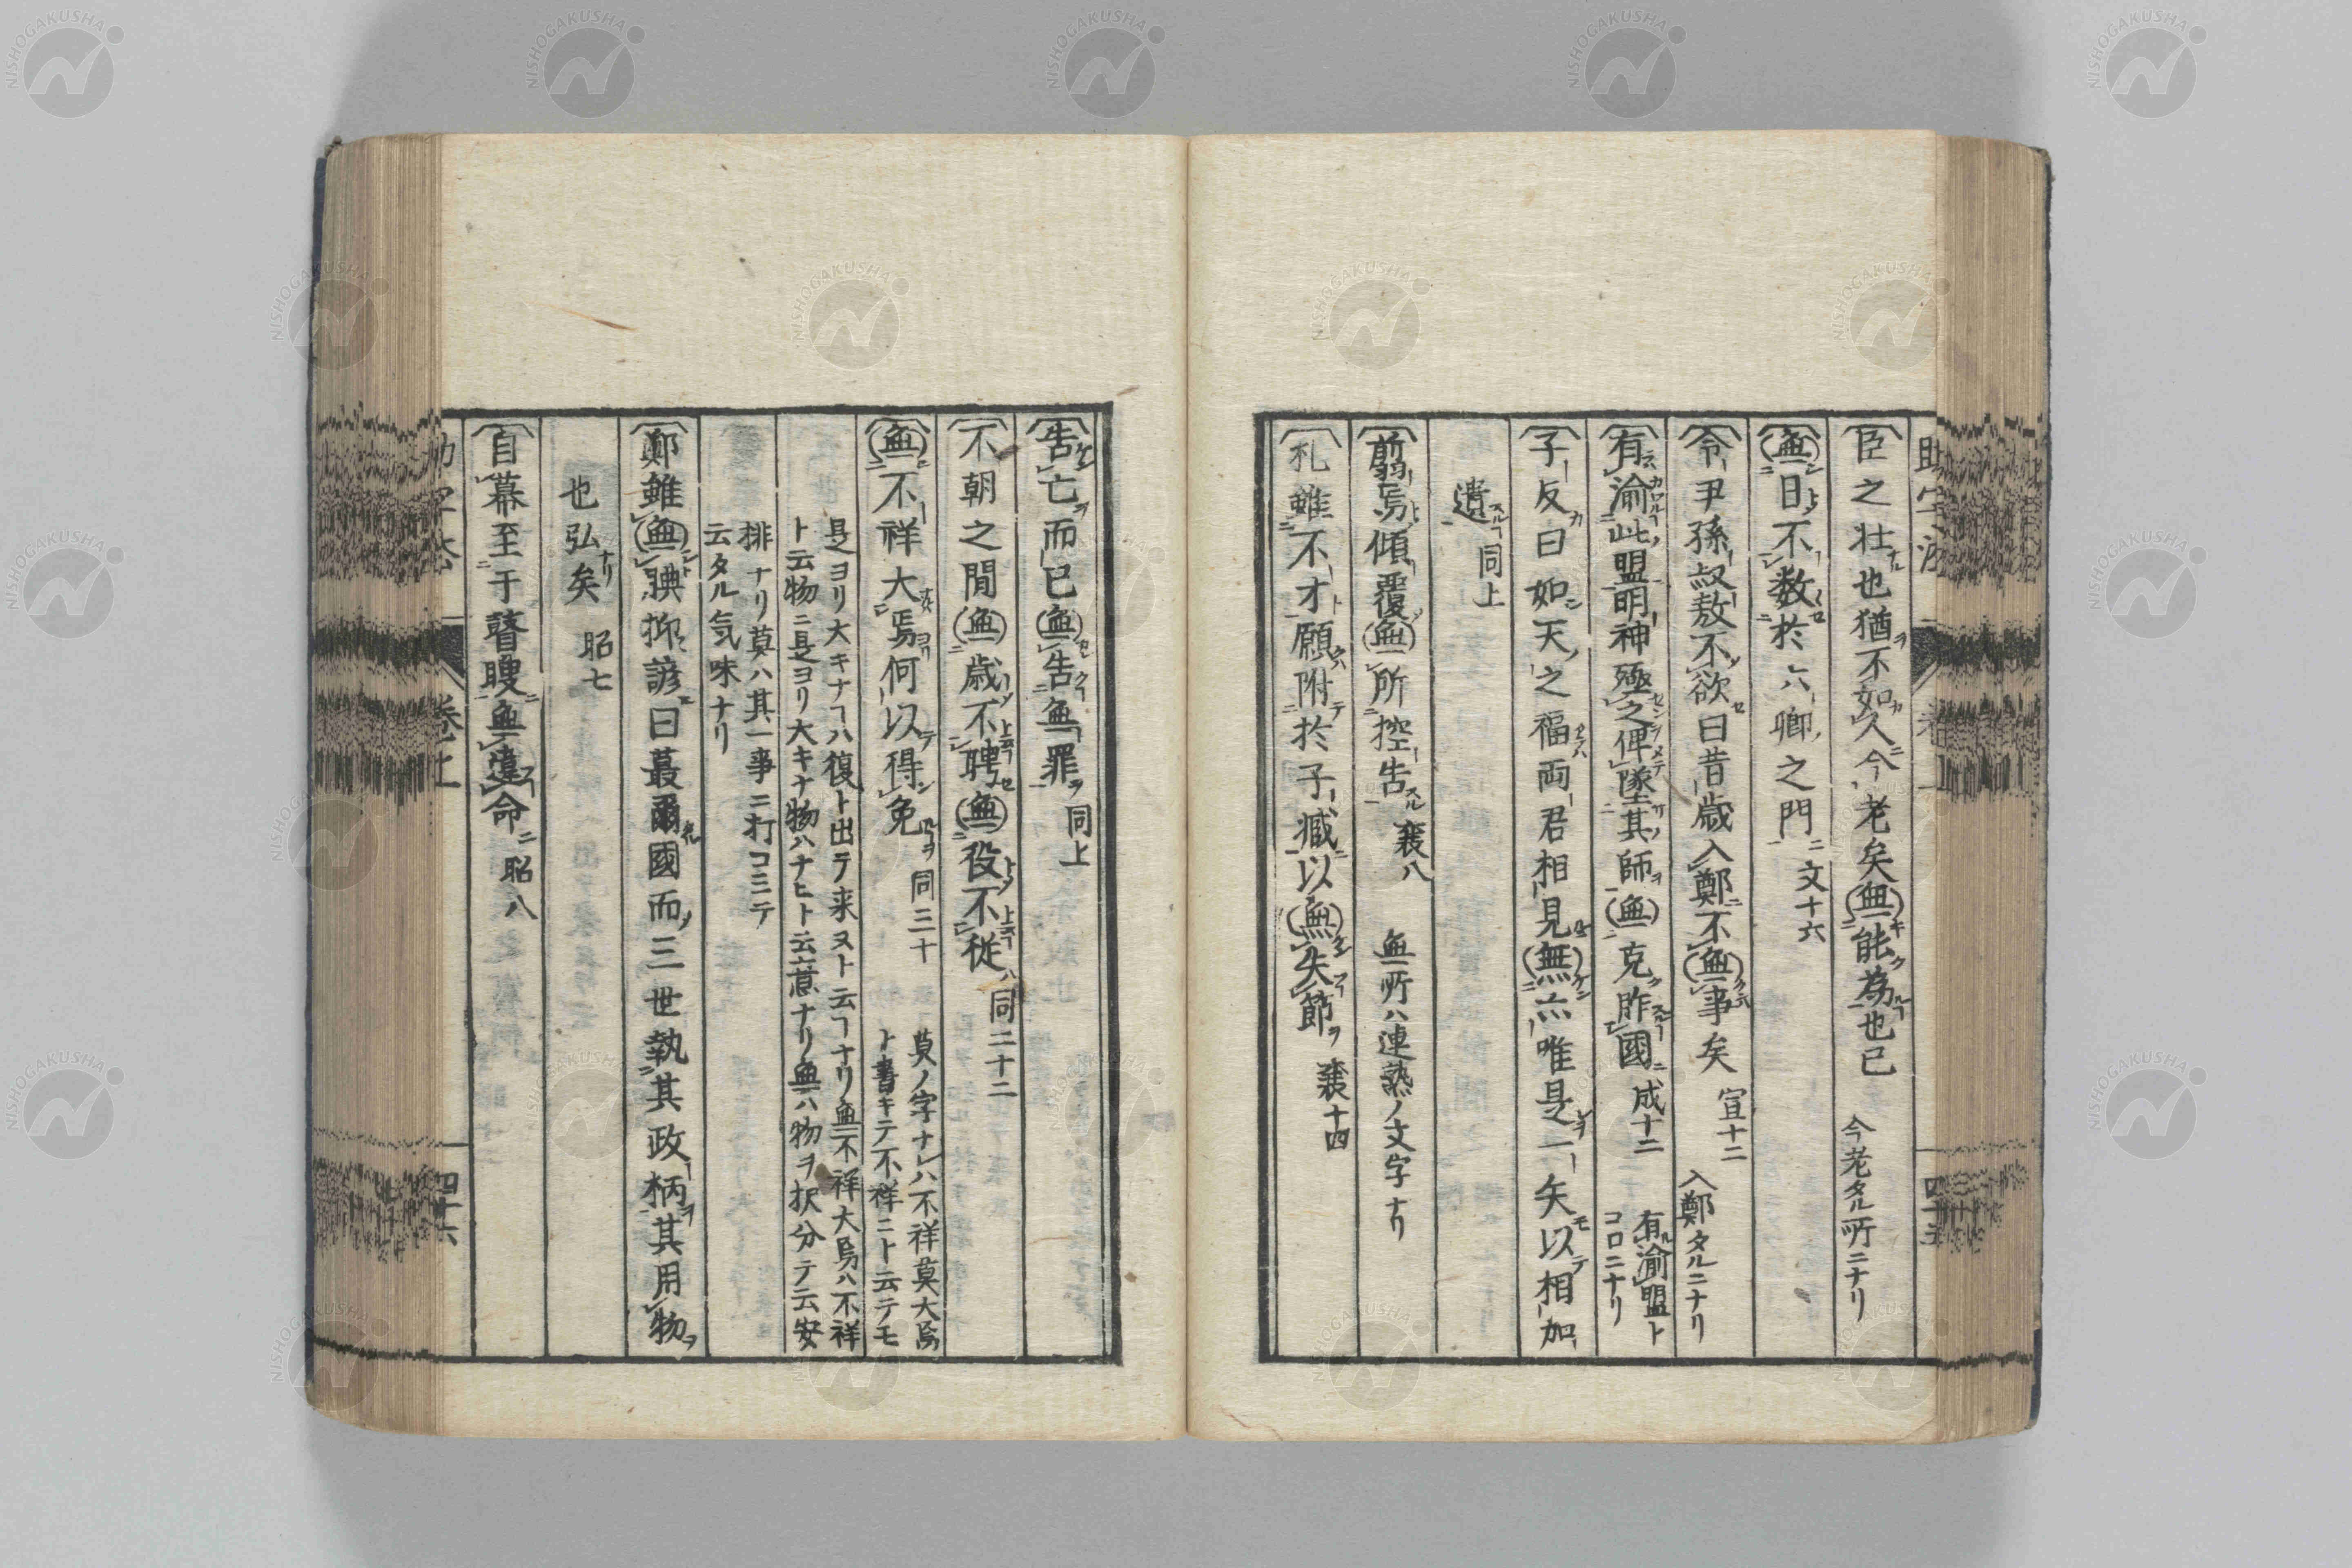 臣之壮也猶不如人今老矣無能為也已 今老タル所ニナリ
無日不数於六卿之門 文十六
令尹孫叔敖不欲曰昔歳入鄭不無事矣 宣十二 入鄭タルニナリ
有渝此盟明神殛之俾墜其師無克胙國 成十二 有渝盟トコロニナリ
子反曰如天之福両君相見無亦唯是一矢以相加
遺 同上
翦焉傾覆無所控告 襄八 無所ハ連熟ノ文字ナリ
札雖不才願附於子臧以無失節 襄十四
告亡而已無告無罪 同上
不朝之間無歳不聘無役不従 同二十二
無不祥大焉何以得免 同三十 莫ノ字ナレハ不祥莫大焉
ト書キテ不祥ニト云テモ
是ヨリ大キナヿハ復ト出テ来ヌト云ヿナリ無不祥大焉ハ不祥
ト云物ニ是ヨリ大キナ物ハナヒト云意ナリ無ハ物ヲ択分テ云安
排ナリ莫ハ其一事ニ打コミテ
云タル気味ナリ
鄭雖無腆抑諺曰蕞爾國而三世執其政柄其用物
也弘矣 昭七
自幕至于瞽瞍無違命 昭八
巻上
四十六
NISHOGAKUSHA